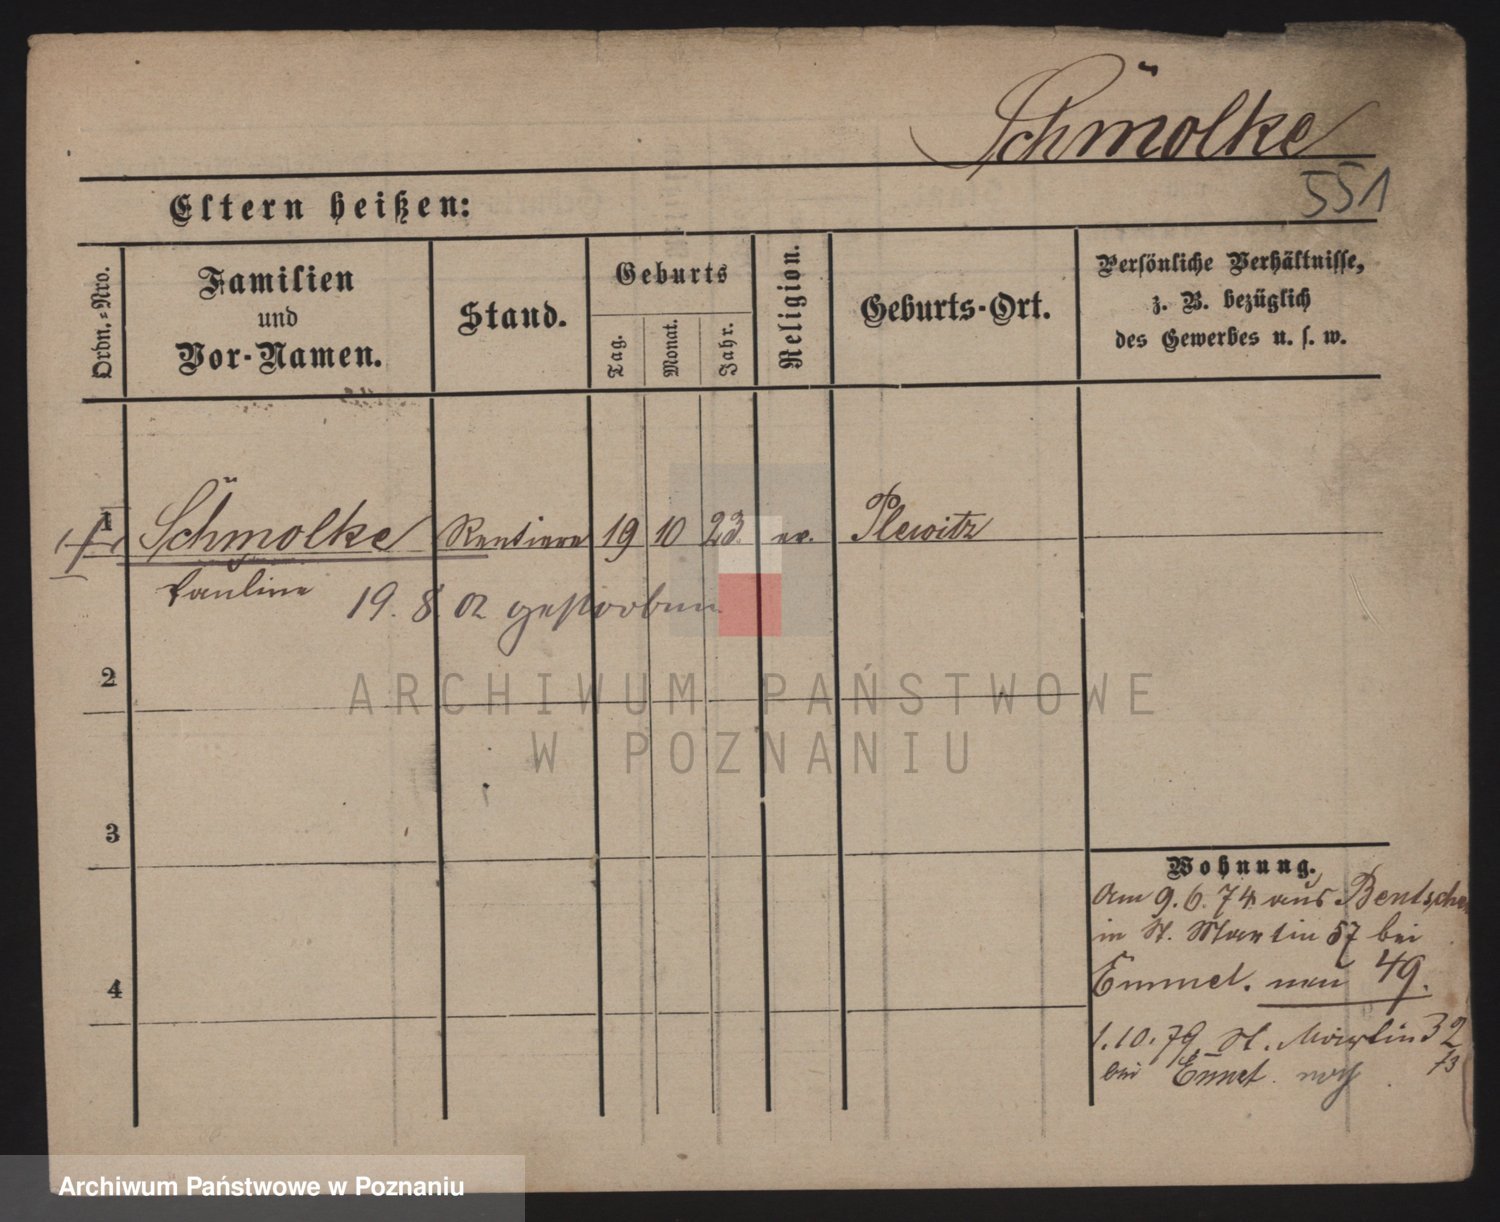 Schmolke
551
Eltern heißen:
Ordn.-Nro.
Familien
und
Vor-Namen.
Stand.
Geburts
Tag.
Monat.
Jahr.
Religion.
Geburts-Ort.
Persönliche Verhältnisse,
z. B. bezüglich
des Gewerbes u. s. w.
1 Schmolke Rentiere 19 10 23. ev. Plewitz
Pauline
19. 8 02 gestorben
2
3
4
Wohnung.
Am 9. 6. 74 aus Bentschen
in St. Martin 57 bei
Emmel. neu 49.
1. 10. 79 St. Martin 32
bei noch 73
ARCHIWUM PAŃSTWOWE
W POZNANIU
Archiwum Państwowe w Poznaniu